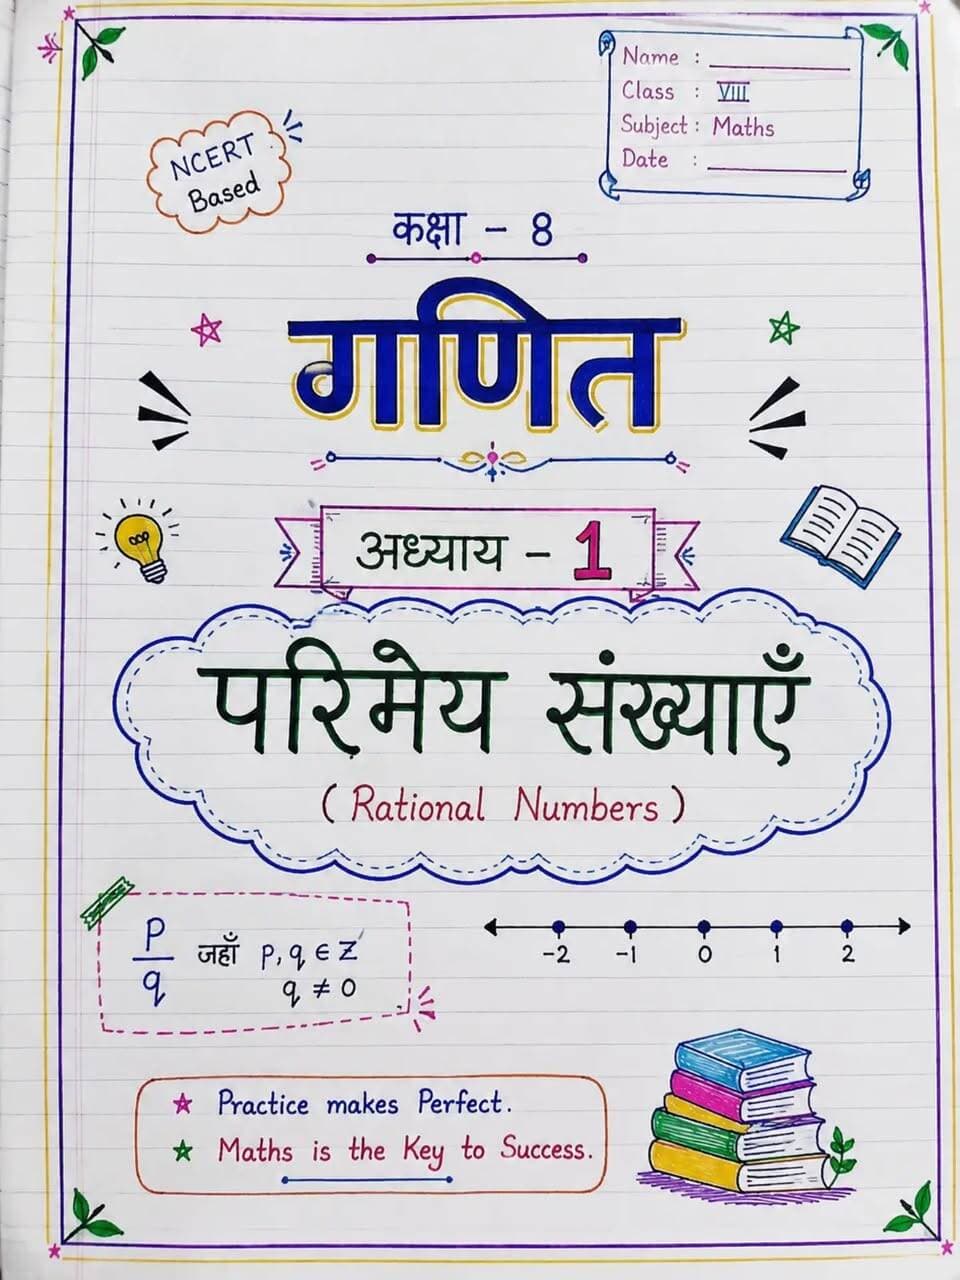 Name : 
Class : VIII
Subject : Maths
Date : 
NCERT
Based
कक्षा – 8
गणित
अध्याय – 1
परिमेय संख्याएँ
( Rational Numbers )
P
q
जहाँ p, q ∈ Z
q ≠ 0
-2 -1 0 1 2
Practice makes Perfect.
Maths is the Key to Success.